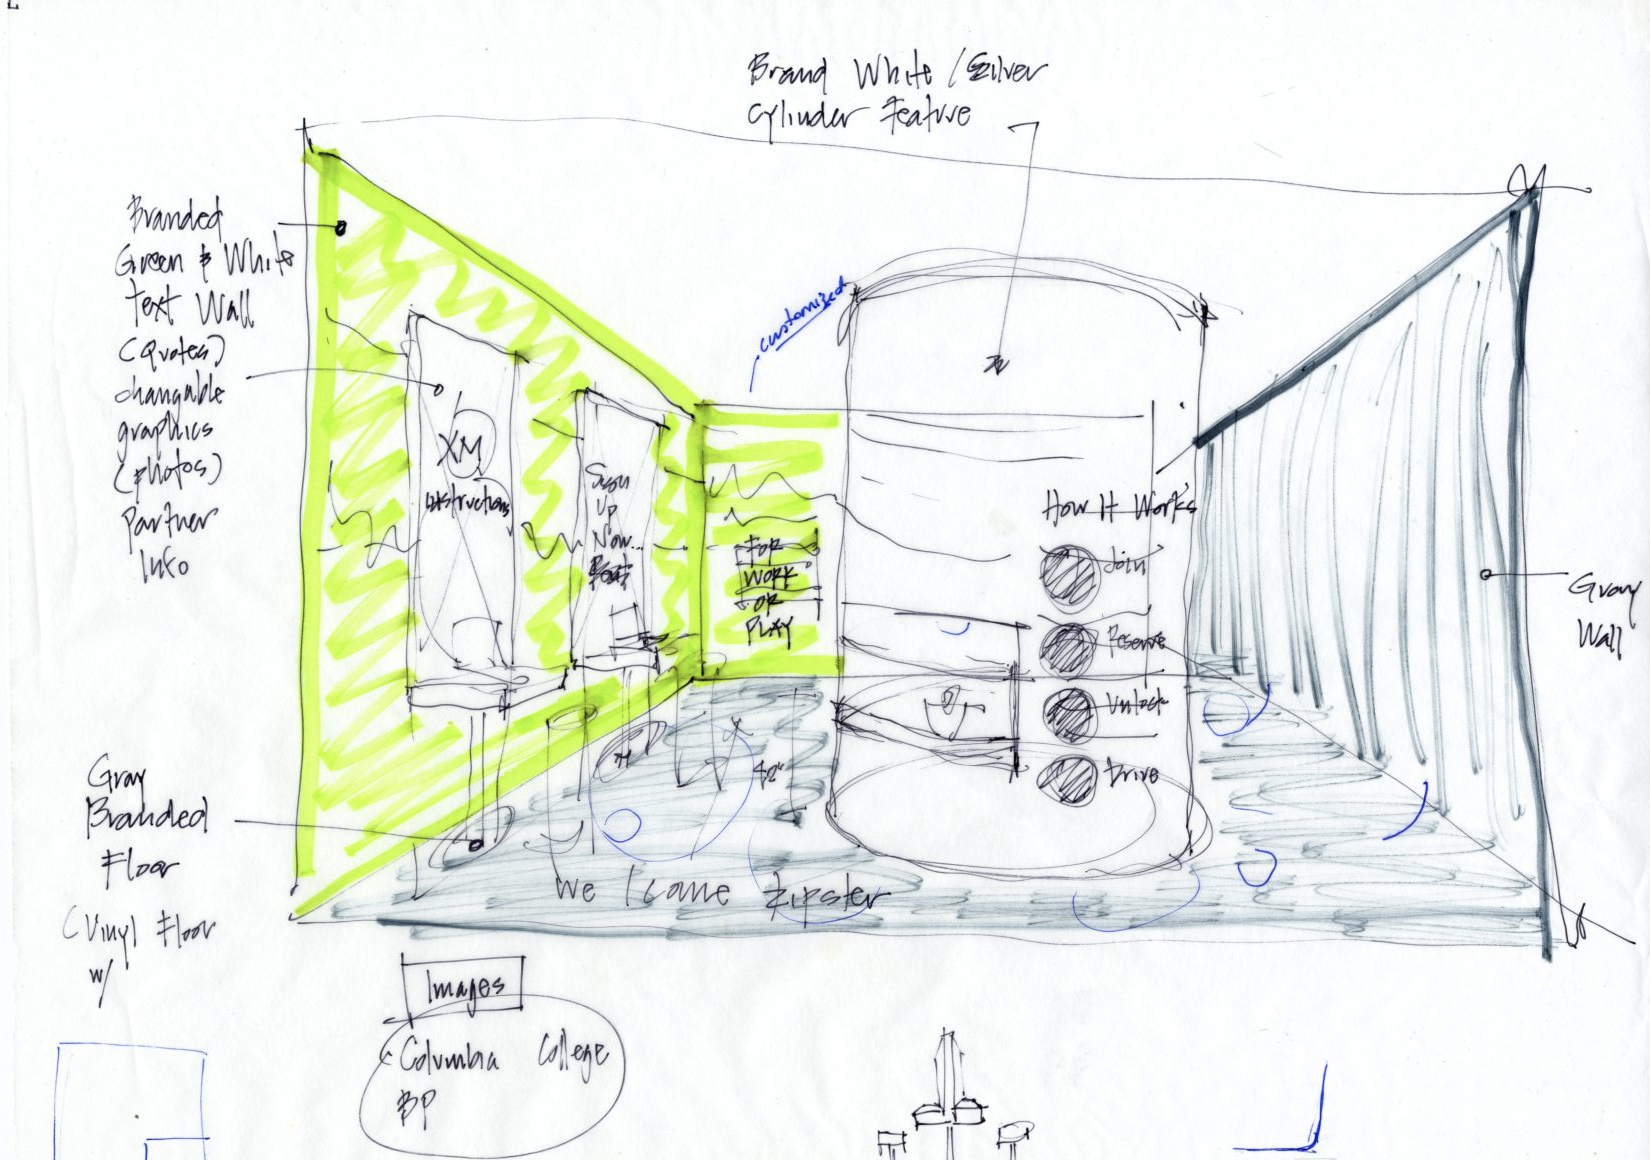 Brand White / Silver
Cylinder Feature
Branded
Green & White
Text Wall
(Quotes)
changable
graphics
(Photos)
Partner
Info
customized
XM
Instructions
Sign
Up
Now...
FOR
WORK
OR
PLAY
How It Works
Join
Reserve
Unlock
Drive
Gray
Wall
42"
Gray
Branded
Floor
(Vinyl Floor
w/
We lcome Zipster
Images
Columbia College
BP